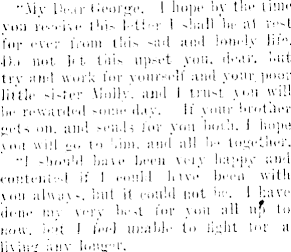 "My Dear George, I hope by the time
you receive this letter I shall be at rest
for ever from this sad and lonely life.
Do not let this upset you, dear, but
try and work for yourself and your poor
little sister Molly, and I trust you will
be rewarded some day. If your brother
gets on, and sends for you both, I hope
you will go to him, and all be together.
"I should have been very happy and
contented if I could have been with
you always, but it could not be. I have
done my very best for you all up to
now, but I feel unable to fight for a
living any longer.